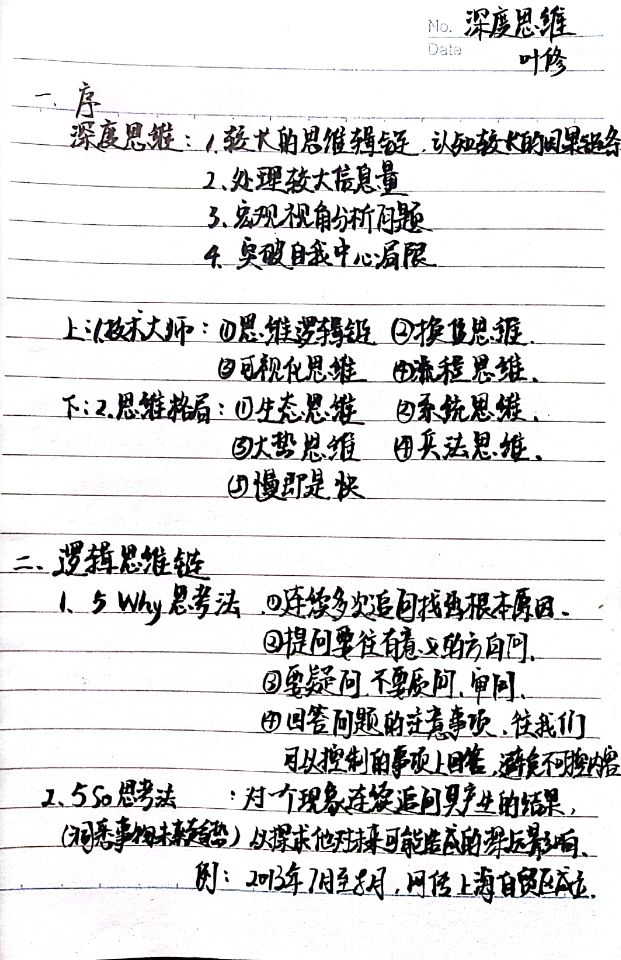 No. 深度思维
Date 叶修
一、序
深度思维：1.较大的思维辑链，认知较长的因果链条
2.处理较大信息量
3.宏观视角分析问题
4.突破自我中心局限
上：1.技术大师：①思维逻辑链 ②换位思维.
③可视化思维 ④流程思维.
下：2.思维格局：①生态思维 ②系统思维.
③大势思维 ④兵法思维.
⑤慢即是快
二、逻辑思维链
1、5 Why思考法 ①连续多次追问找到根本原因.
②提问要往有意义的方向问.
③要疑问,不要质问,审问.
④回答问题的注意事项,往我们
可以控制的事项上回答,避免不可控内容
2、5 So思考法：对一个现象连续追问其产生的结果,
(洞悉事物未来趋势) 以探求他对未来可能造成的深远影响.
例：2013年7月至8月,网传上海自贸区成立.